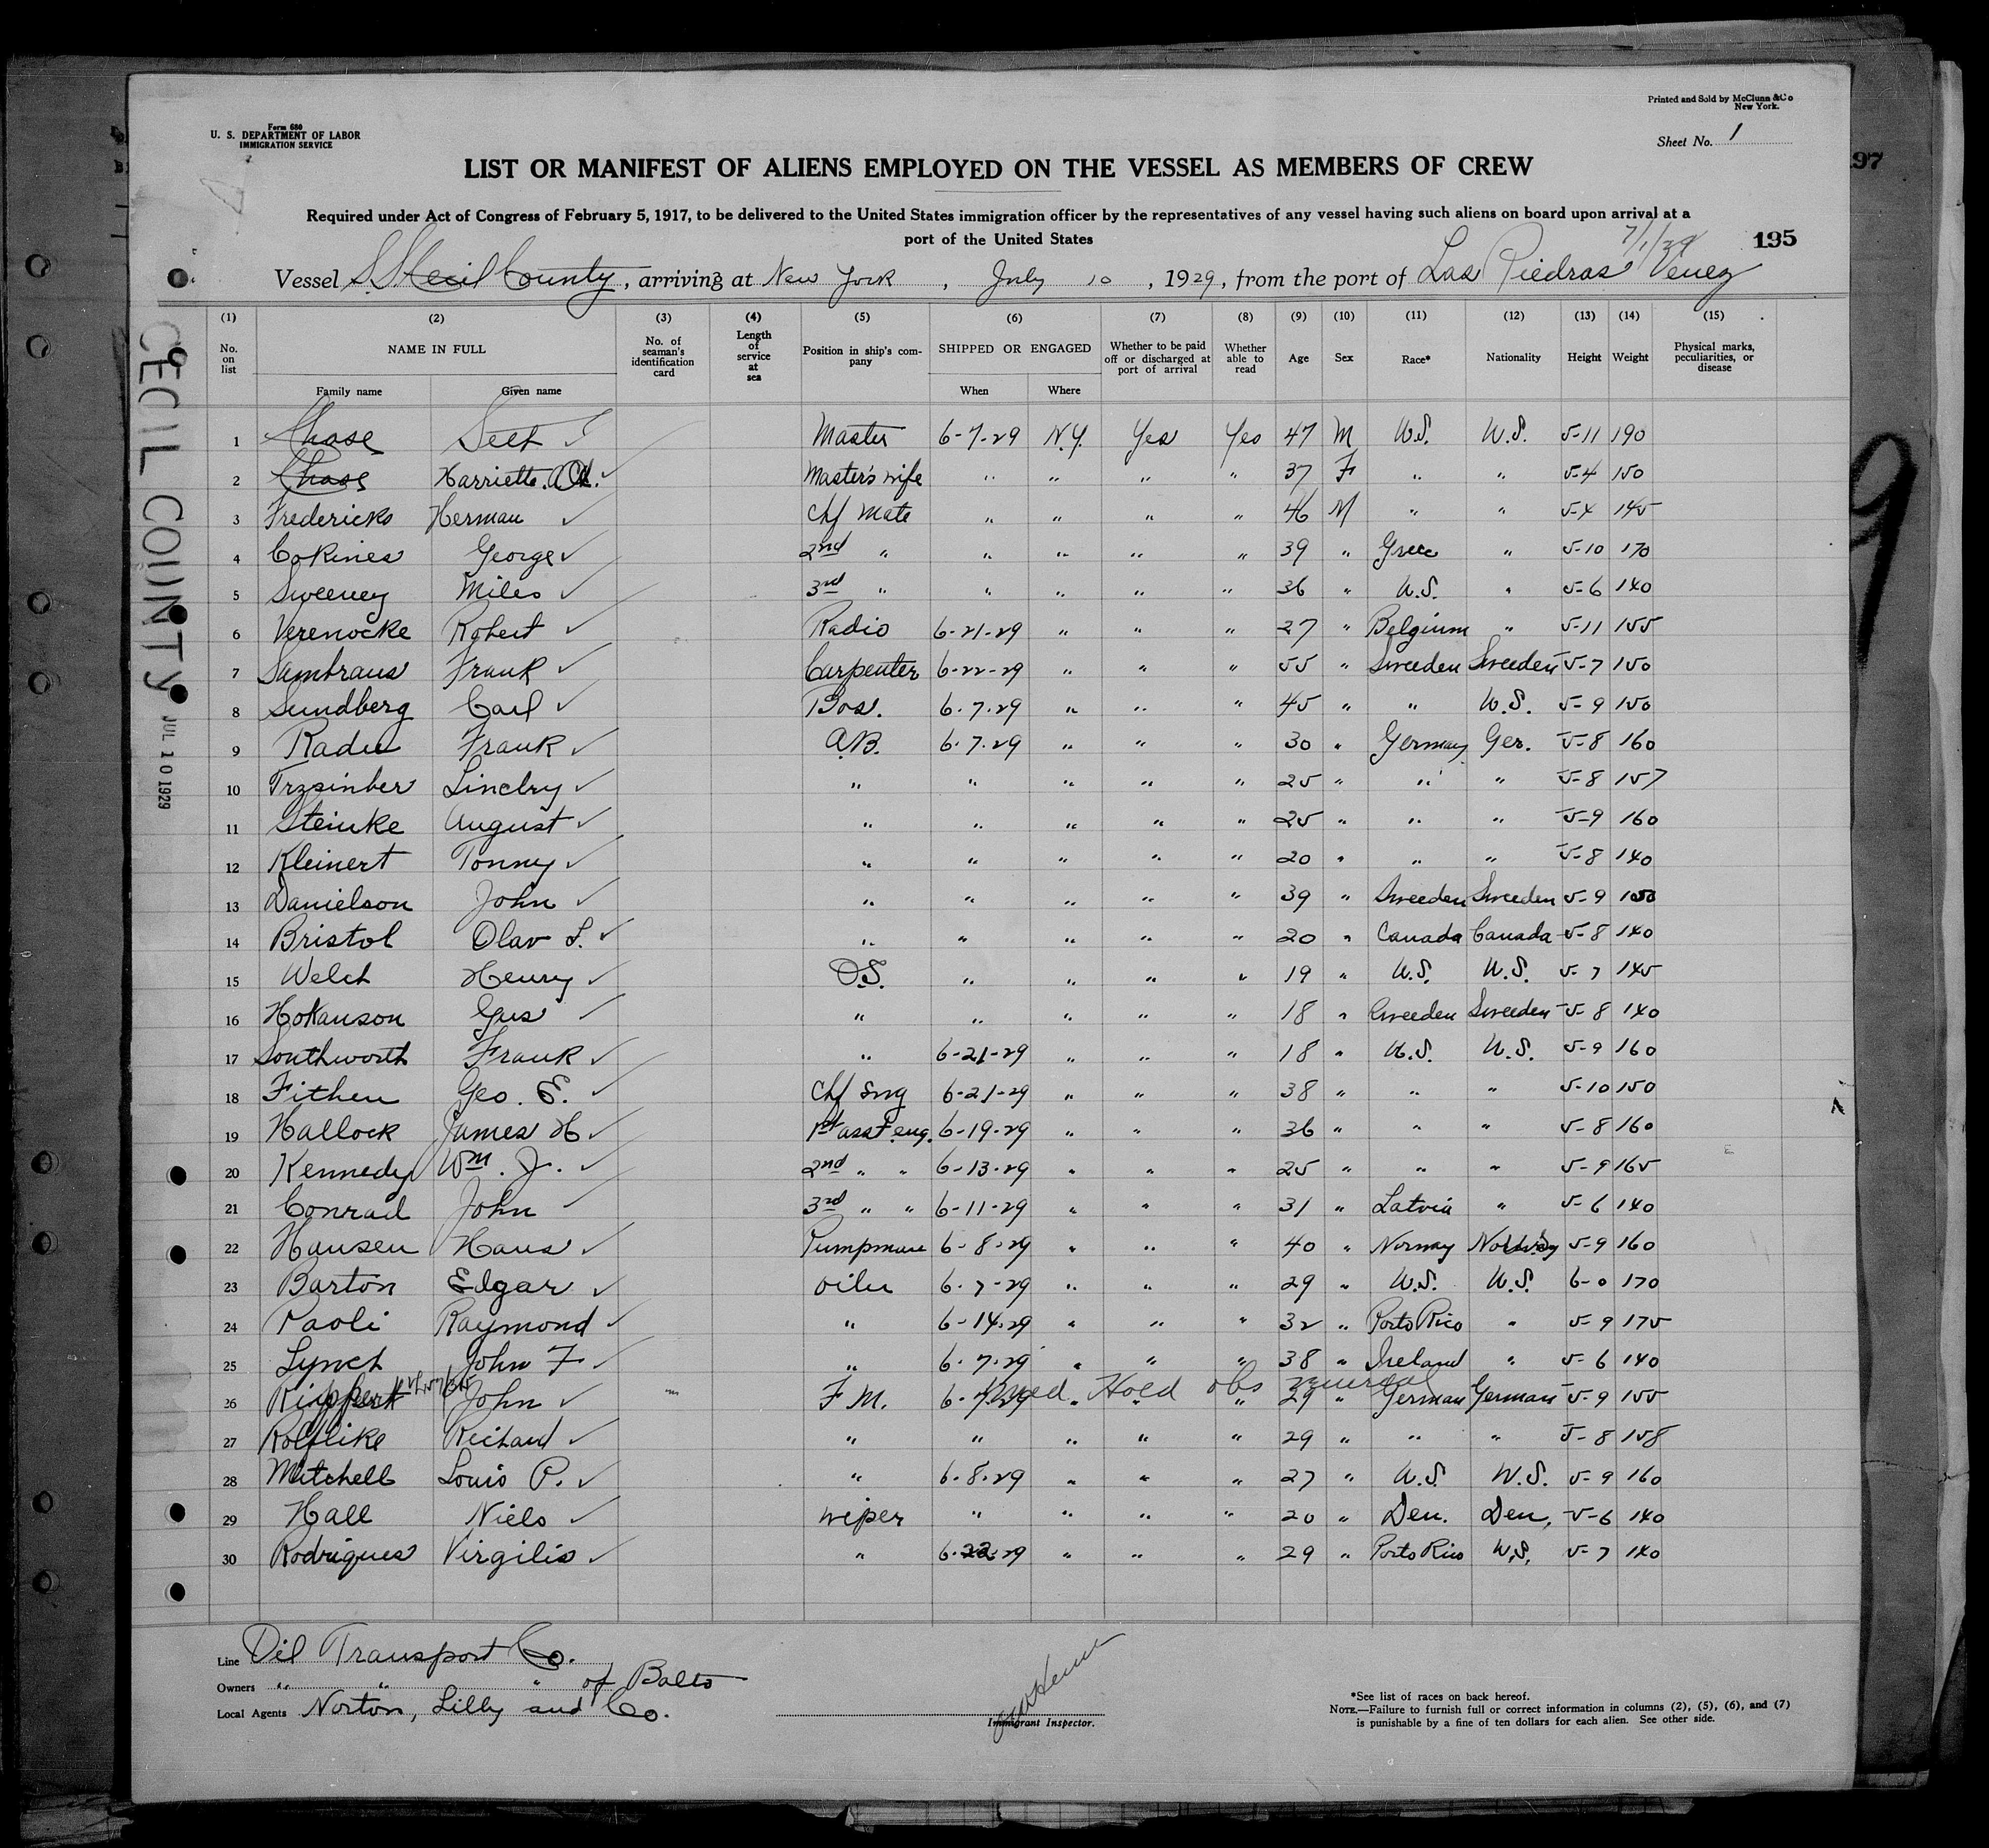 Form 680
U. S. DEPARTMENT OF LABOR
IMMIGRATION SERVICE
Printed and Sold by McClunn & Co
New York.
Sheet No. 1
LIST OR MANIFEST OF ALIENS EMPLOYED ON THE VESSEL AS MEMBERS OF CREW
Required under Act of Congress of February 5, 1917, to be delivered to the United States immigration officer by the representatives of any vessel having such aliens on board upon arrival at a
port of the United States
7/1/29
195
97
Vessel SS Cecil County, arriving at New York, July 10, 1929, from the port of Las Piedras Venez
CECIL COUNTY JUL 10 1929
9
(1) (2) (3) (4) (5) (6) (7) (8) (9) (10) (11) (12) (13) (14) (15)
No. on list
NAME IN FULL
Family name Given name
No. of seaman's identification card
Length of service at sea
Position in ship's company
SHIPPED OR ENGAGED
When Where
Whether to be paid off or discharged at port of arrival
Whether able to read
Age Sex Race* Nationality Height Weight
Physical marks, peculiarities, or disease
1 Chase Seth Master 6-7-29 N.Y. Yes Yes 47 M U.S. U.S. 5-11 190
2 Chase Harriette Master's wife " " " " 37 F " " 5-4 150
3 Fredericks Herman ✓ Chf Mate " " " " 46 M " " 5-4 145
4 Cokines George ✓ 2nd " " " " " 39 " Greec " 5-10 170
5 Sweeney Miles ✓ 3rd " " " " " 36 " U.S. " 5-6 140
6 Verenocke Robert ✓ Radio 6-21-29 " " " 27 " Belgium " 5-11 155
7 Sambraus Frank ✓ Carpenter 6-22-29 " " " 55 " Sweeden Sweeden 5-7 150
8 Sundberg Carl ✓ Bos. 6.7.29 " " " 45 " " U.S. 5-9 150
9 Radu Frank ✓ A.B. 6.7.29 " " " 30 " Germany Ger. 5-8 160
10 ✓ " " " " " 25 " " " 5-8 157
11 Steinke August ✓ " " " " " 25 " " " 5-9 160
12 Kleinert Tonny ✓ " " " " " 20 " " " 5-8 140
13 Danielson John ✓ " " " " " 39 " Sweeden Sweeden 5-9 150
14 Bristol Olav L. ✓ " " " " " 20 " Canada Canada 5-8 140
15 Welch Henry ✓ O.S. " " " " 19 " U.S. U.S. 5-7 145
16 Hokanson Gus ✓ " " " " " 18 " Sweeden Sweeden 5-8 140
17 Southworth Frank ✓ " 6-21-29 " " " 18 " U.S. U.S. 5-9 160
18 Fithen Geo. E. ✓ Chf Eng 6-21-29 " " " 38 " " " 5-10 150
19 Hallock James H ✓ 1st asst eng. 6-19-29 " " " 36 " " " 5-8 160
20 Kennedy Wm. J. ✓ 2nd " " 6-13-29 " " " 25 " " " 5-9 165
21 Conrad John ✓ 3rd " " 6-11-29 " " " 31 " Latvia " 5-6 140
22 Hansen Hans ✓ Pumpman 6-8-29 " " " 40 " Norway Norway 5-9 160
23 Barton Edgar ✓ Oiler 6-7-29 " " " 29 " U.S. U.S. 6-0 170
24 Paoli Raymond ✓ " 6-14-29 " " " 32 " Porto Rico " 5-9 175
25 Lynch John F ✓ " 6.7.29 " " " 38 " Ireland " 5-6 140
26 Rippert John ✓ F M. 6.7.29 " " " 29 " German German 5-9 155
Hold obs
27 Rolflike Richard ✓ " " " " " 29 " " " 5-8 158
28 Mitchell Louis P. ✓ " 6.8.29 " " " 27 " U.S. U.S. 5-9 160
29 Hall Niels ✓ Wiper " " " " 20 " Den. Den. 5-6 140
30 Rodrigues Virgilio ✓ " 6.22.29 " " " 29 " Porto Rico U.S. 5-7 140
Line Oil Transport Co.
Owners " " " of Balto
Local Agents Norton, Lilly and Co.
Immigrant Inspector.
*See list of races on back hereof.
NOTE.—Failure to furnish full or correct information in columns (2), (5), (6), and (7)
is punishable by a fine of ten dollars for each alien. See other side.